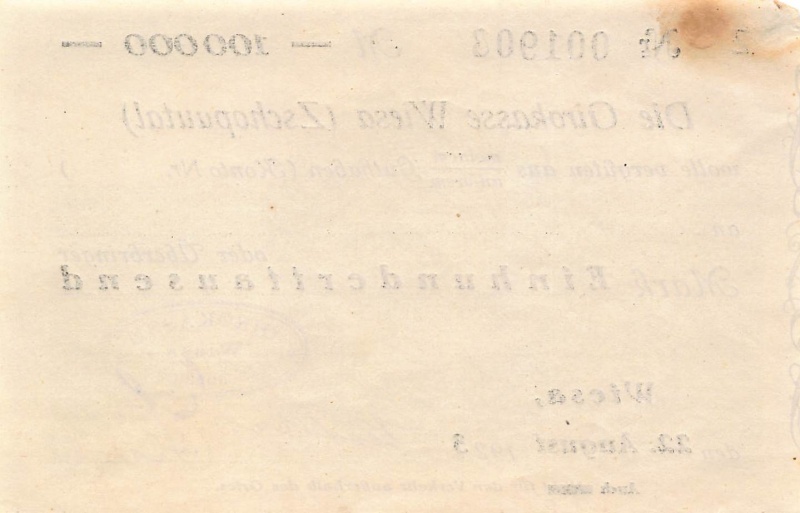 Nr 001903 M — 100000 —
Die Girokasse Wiesa (Zschopautal)
wolle vergüten aus meinem/unserem Guthaben (Konto Nr. )
an
oder Überbringer
Mark Einhunderttausend
Wiesa,
den 22. August 1923
Auch für den Verkehr außerhalb des Ortes.